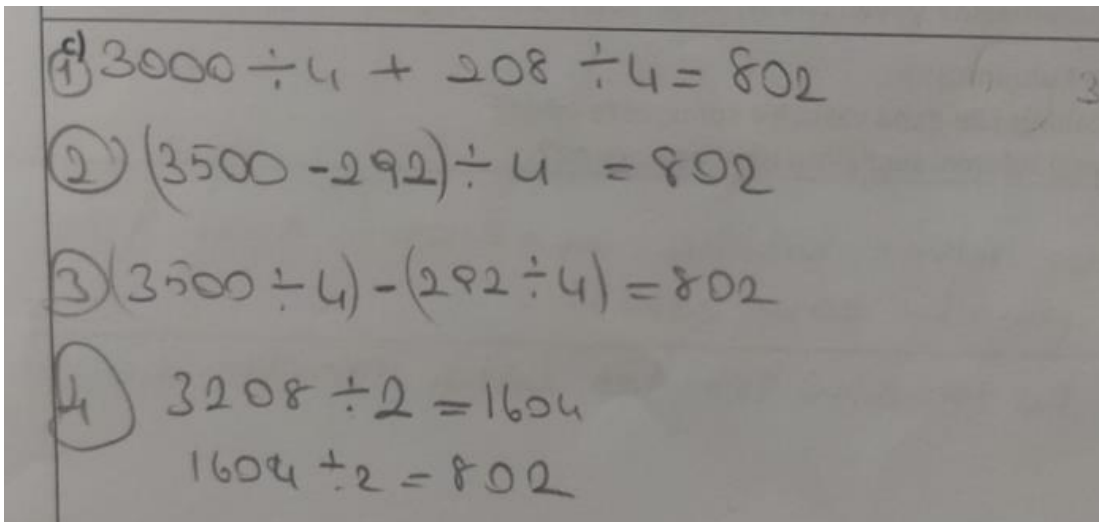 c)
① 3000 ÷ 4 + 208 ÷ 4 = 802
② (3500 - 292) ÷ 4 = 802
③ (3500 ÷ 4) - (292 ÷ 4) = 802
④ 3208 ÷ 2 = 1604
1604 ÷ 2 = 802